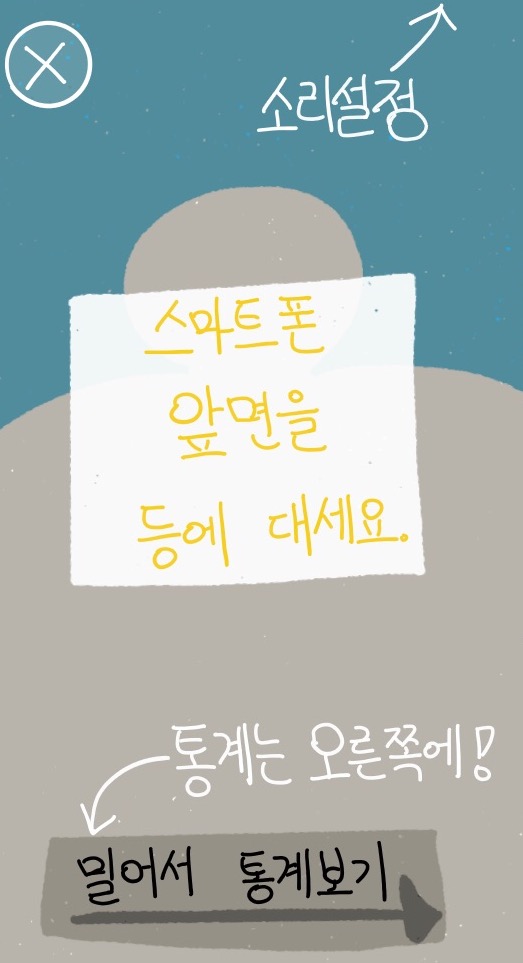 소리설정
스마트폰
앞면을
등에 대세요.
통계는 오른쪽에!
밀어서 통계보기